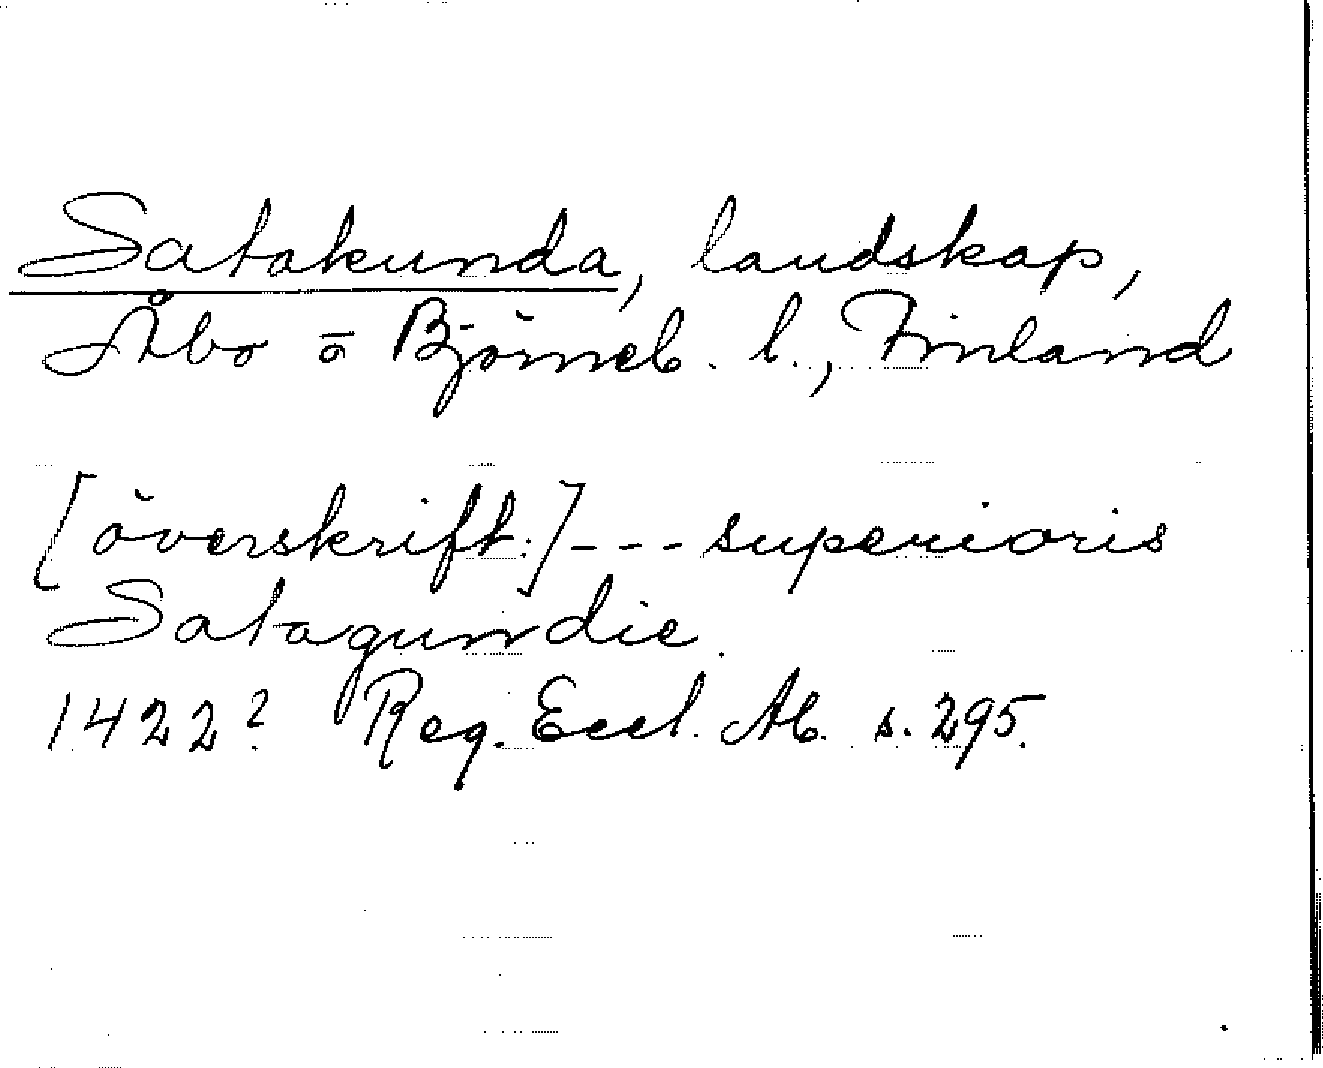 Satakunda, landskap,
Åbo o Björneb. l., Finland
[överskrift:] --- superioris
Satagundie.
1422? Reg. Eccl. Ab. s. 295.